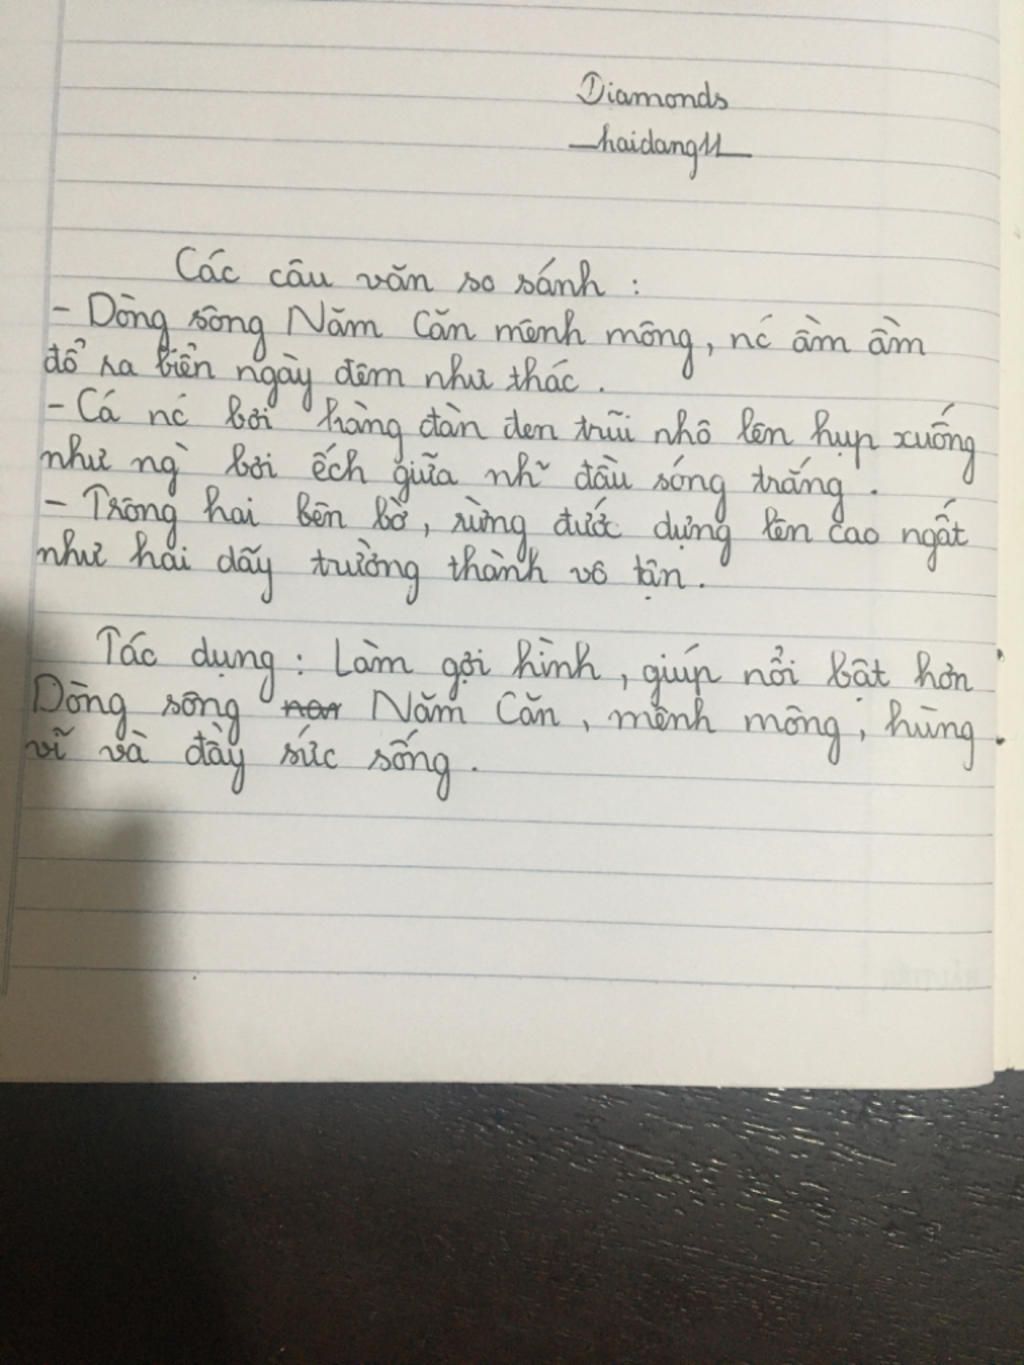 Diamonds
haidang11
Các câu văn so sánh :
- Dòng sông Năm Căn mênh mông, nc ầm ầm
đổ ra biển ngày đêm như thác .
- Cá nc bơi hàng đàn đen trũi nhô lên hụp xuống
như ng` bơi ếch giữa nh~ đầu sóng trắng .
- Trông hai bên bờ, rừng đước dựng lên cao ngất
như hai dãy trường thành vô tận .
Tác dụng : Làm gợi hình, giúp nổi bật hơn
Dòng sông Năm Căn, mênh mông, hùng
vĩ và đầy sức sống .